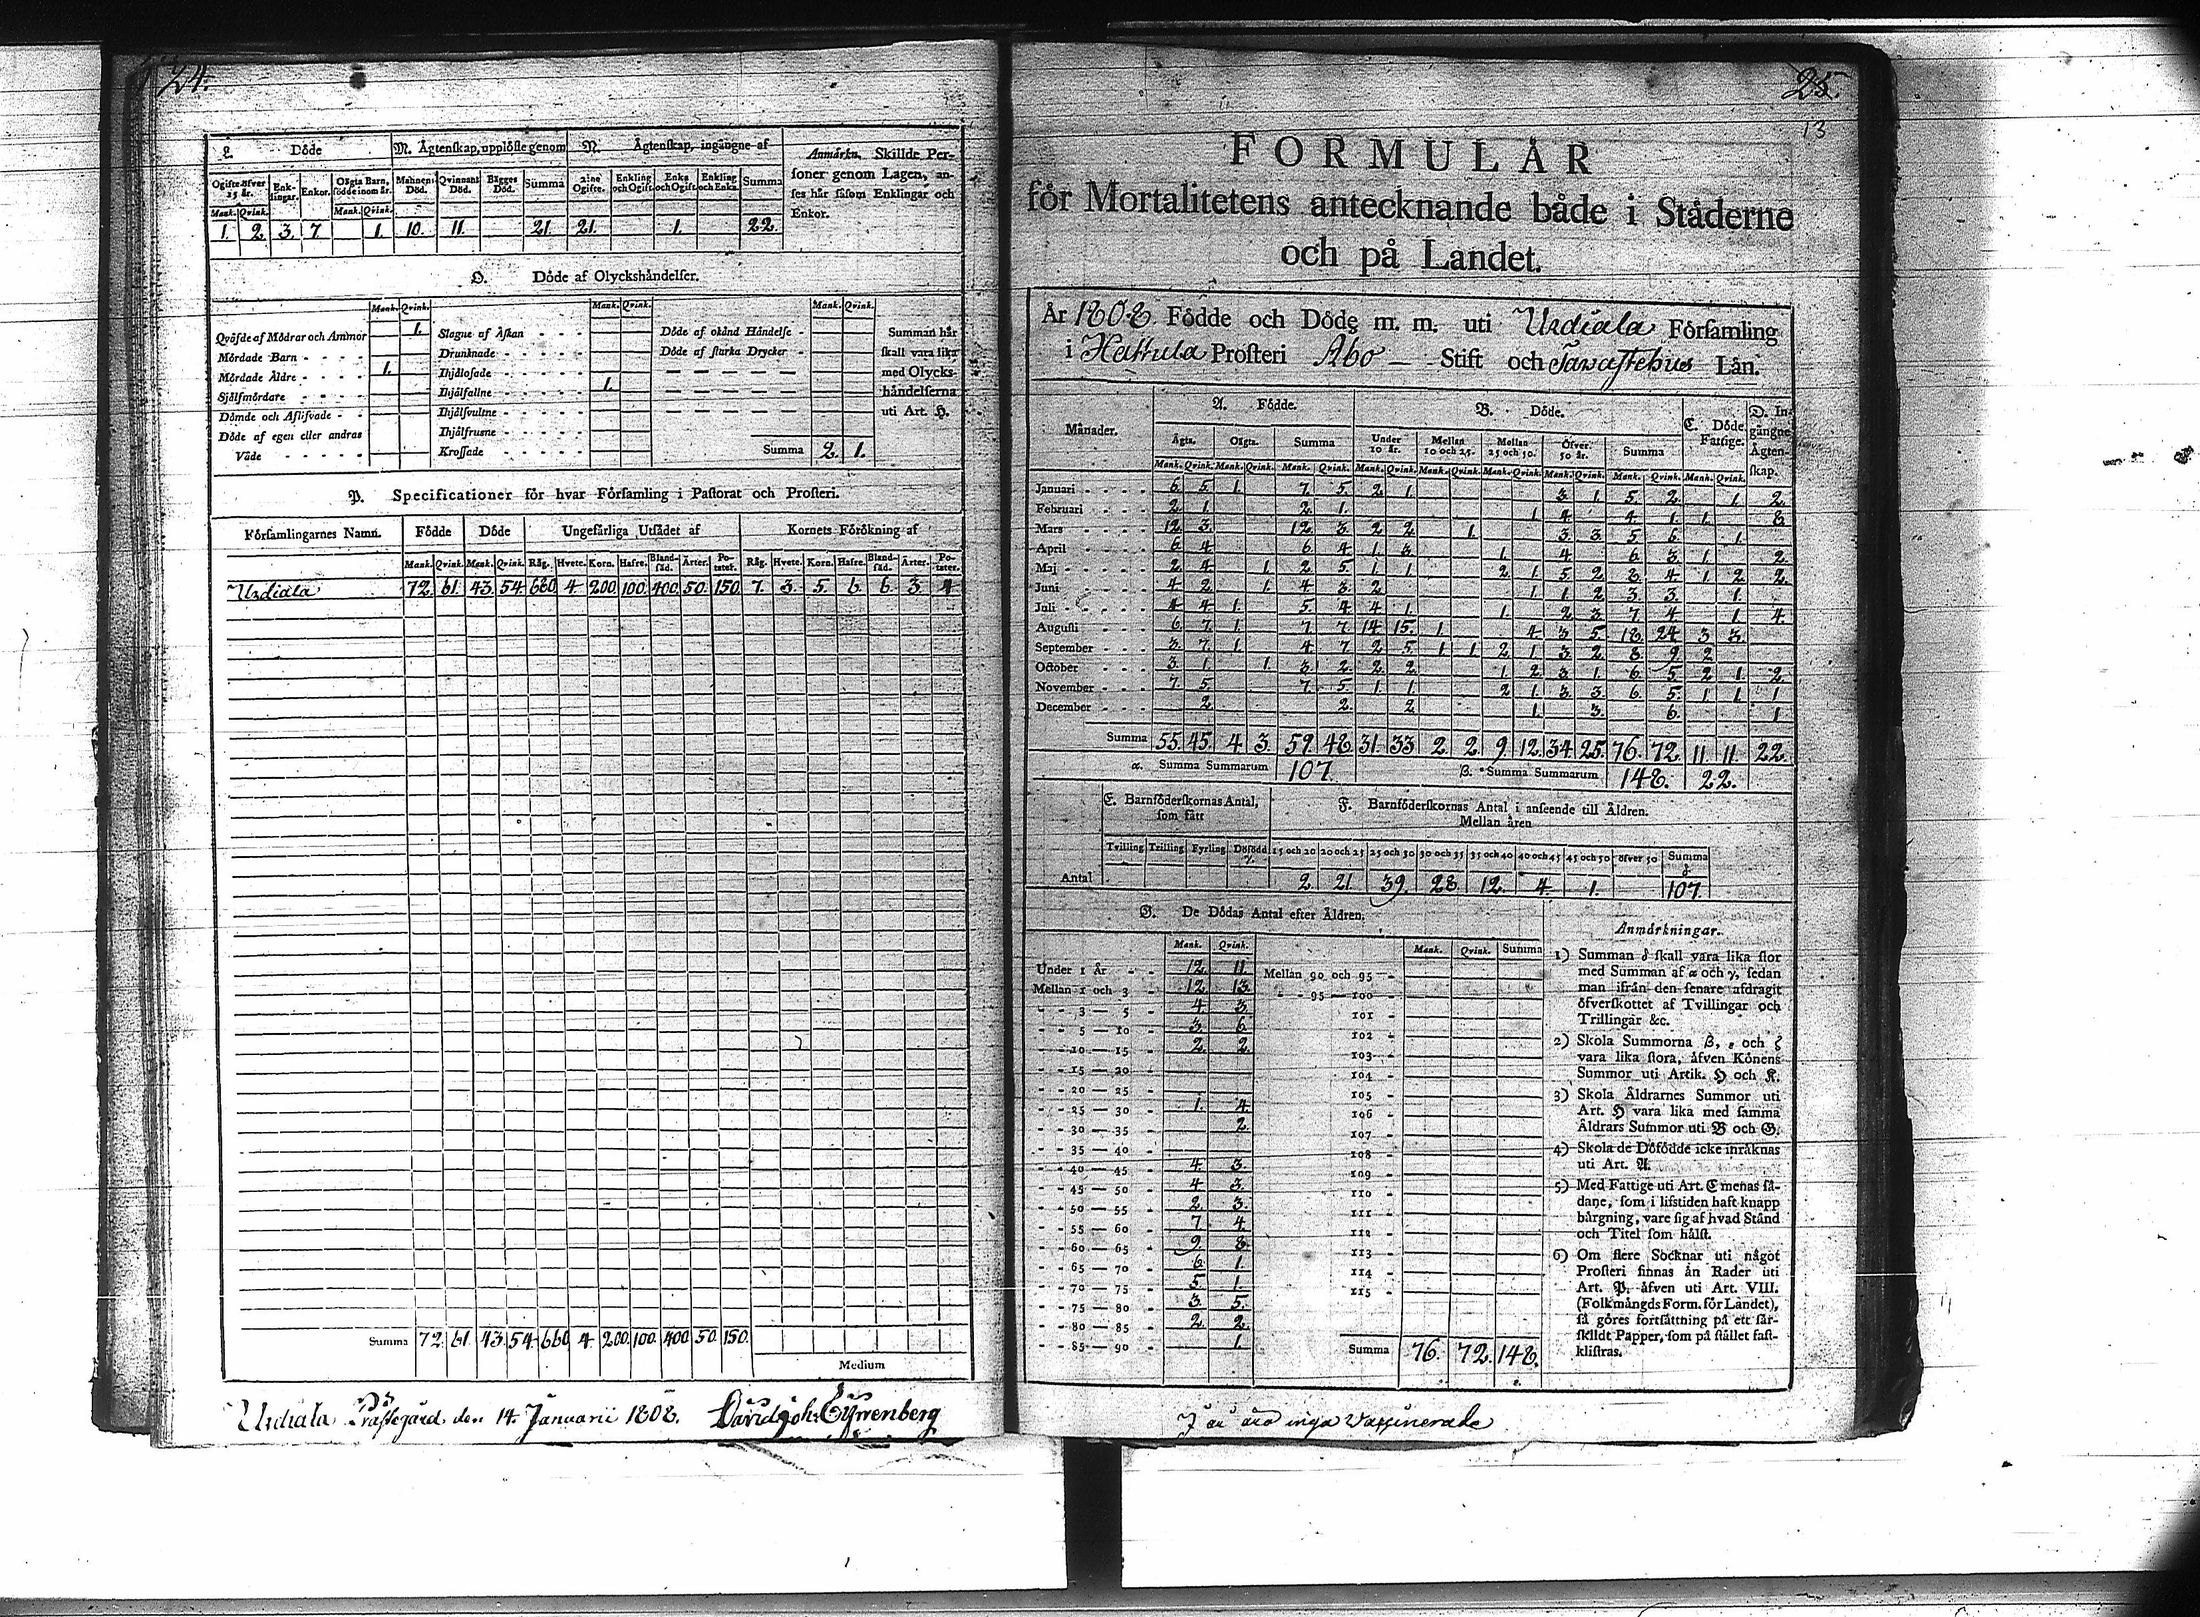 24.
L. Döde
M. Ägtenskap, upplöste genom
N. Ägtenskap, ingångne af
Anmärkn. Skillde Per-
soner genom Lagen, an-
ses här såsom Enklingar och
Enkor.
Ogifte öfver 25 år. Enk-lingar. Enkor. Oägta Barn, födde inom år. Mannens Död. Qvinnans Död. Bägges Död. Summa 2:ne Ogifte. Enkling och Ogift. Enka och Ogift. Enkling och Enka. Summa
Mank. Qvink. Mank. Qvink.
1. 2. 3. 7 1. 10. 11. 21. 21. 1. 22
O. Döde af Olyckshändelser.
Mank. Qvink. Mank. Qvink. Mank. Qvink.
Qväfde af Mödrar och Ammor 1. Slagne af Åskan - - - Döde af okänd Händelse - Summan här
Mördade Barn - - - - Drunknade - - - - - Döde af starka Drycker - skall vara lika
Mördade Äldre - - - - 1. Ihjälosade - - - - med Olycks-
Sjelfmördare - - - - Ihjälfallne - - - - 1. händelserna
Dömde och Aflifvade - - Ihjälsvultne - - - - uti Art. H.
Döde af egen eller andras Ihjälfrusne - - - -
Våde - - - - - Krossade - - - - - Summa 2. 1.
P. Specificationer för hvar Församling i Pastorat och Prosteri.
Församlingarnes Namn. Födde Döde Ungefärliga Utsädet af Kornets Förökning af
Mank. Qvink. Mank. Qvink. Råg. Hvete. Korn. Hafre. Bland-säd. Ärter. Po-tater. Råg. Hvete. Korn. Hafre. Bland-säd. Ärter. Po-tater.
Urdiala 72. 61. 43. 54. 660. 4 200. 100. 400. 50. 150. 7. 3. 5. 6. 6. 3. 4
Summa 72. 61. 43. 54. 660. 4. 200. 100. 400. 50. 150.
Medium
Urdiala Prästegård den 14. Januarii 1808.
25.
13
FORMULÄR
för Mortalitetens antecknande både i Städerne
och på Landet.
År 1808 Födde och Döde m. m. uti Urdiala Församling
i Hattula Prosteri Åbo — Stift och Tavastehus Län.
Månader. A. Födde. B. Döde. C. Döde Fattige. D. In-gångne Ägten-skap.
Ägta. Oägta. Summa Under 10 år. Mellan 10 och 25. Mellan 25 och 50. Öfver 50 år. Summa
Mank. Qvink. Mank. Qvink. Mank. Qvink. Mank. Qvink. Mank. Qvink. Mank. Qvink. Mank. Qvink. Mank. Qvink. Mank. Qvink.
Januari - - - - 6. 5. 1. 7. 5. 2. 1. 3. 1. 5. 2. 1. 2.
Februari - - - - 2. 1. 2. 1. 1. 4. 4. 1. 1. 8.
Mars - - - - 12. 3. 12. 3. 2. 2. 1. 3. 3. 5. 6. 1.
April - - - - 6. 4. 6. 4. 1. 3. 1. 4. 6. 3. 1. 2.
Maj - - - - 2. 4. 1. 2. 5. 1. 1. 2. 1. 5. 2. 8. 4. 1. 2. 2.
Juni - - - - 4. 2. 1. 4. 3. 2. 1. 1. 2. 3. 3. 1.
Juli - - - - 4. 4. 1. 5. 4. 4. 1. 1. 2. 3. 7. 4. 1. 4.
Augusti - - - 6. 7. 1. 7. 7. 14. 15. 1. 4. 3. 5. 18. 24. 3. 3.
September - - - 3. 7. 1. 4. 7. 2. 5. 1. 1. 2. 1. 3. 2. 8. 9. 2.
October - - - 3. 1. 1. 3. 2. 2. 2. 1. 2. 3. 1. 6. 5. 2. 1. 2.
November - - - 7. 5. 7. 5. 1. 1. 2. 1. 3. 3. 6. 5. 1. 1. 1
December - - - 2. 2. 2. 1. 3. 6. 1
Summa 55. 45. 4. 3. 59. 48. 31. 33. 2. 2. 9. 12. 34. 25. 76. 72. 11. 11. 22.
α. Summa Summarum 107. β. Summa Summarum 148. 22.
E. Barnföderskornas Antal, som fått
F. Barnföderskornas Antal i anseende till Åldren.
Mellan åren
Tvilling Trilling Fyrling Dödfödd γ. 15 och 20 20 och 25 25 och 30 30 och 35 35 och 40 40 och 45 45 och 50 öfver 50 Summa δ
Antal 2. 21. 39. 28. 12. 4. 1. 107.
G. De Dödas Antal efter Åldren.
Mank. Qvink. Mank. Qvink. Summa
Under 1 År - - 12. 11. Mellan 90 och 95 -
Mellan 1 och 3 - 12. 13. - - 95 — 100 -
- - 3 — 5 - 4. 3. 101 -
- - 5 — 10 - 3. 6. 102 -
- - 10 — 15 - 2. 2. 103 -
- - 15 — 20 - 104 -
- - 20 — 25 - 105 -
- - 25 — 30 - 1. 4. 106 -
- - 30 — 35 - 2. 107 -
- - 35 — 40 - 108 -
- - 40 — 45 - 4. 3. 109 -
- - 45 — 50 - 4. 3. 110 -
- - 50 — 55 - 2. 3. 111 -
- - 55 — 60 - 7. 4. 112 -
- - 60 — 65 - 9. 8. 113 -
- - 65 — 70 - 6. 1. 114 -
- - 70 — 75 - 5. 1. 115 -
- - 75 — 80 - 3. 5.
- - 80 — 85 - 2. 2.
- - 85 — 90 - 1. Summa 76. 72. 148.
Anmärkningar.
1) Summan δ skall vara lika stor
med Summan af α och γ, sedan
man ifrån den senare afdragit
öfverskottet af Tvillingar och
Trillingar &c.
2) Skola Summorna β, ε och ζ
vara lika stora, äfven Könens
Summor uti Artik. H och K.
3) Skola Åldrarnes Summor uti
Art. H vara lika med samma
Åldrars Summor uti B och G.
4) Skola de Dödfödde icke inräknas
uti Art. A.
5) Med Fattige uti Art. C menas så-
dane, som i lifstiden haft knapp
bärgning, vare sig af hvad Stånd
och Titel som hälst.
6) Om flere Socknar uti något
Prosteri finnas än Rader uti
Art. P. äfven uti Art. VIII.
(Folkmängds Form. för Landet),
så göres fortsättning på ett sär-
skildt Papper, som på stället fast-
klistras.
I år äro inga Vaccinerade